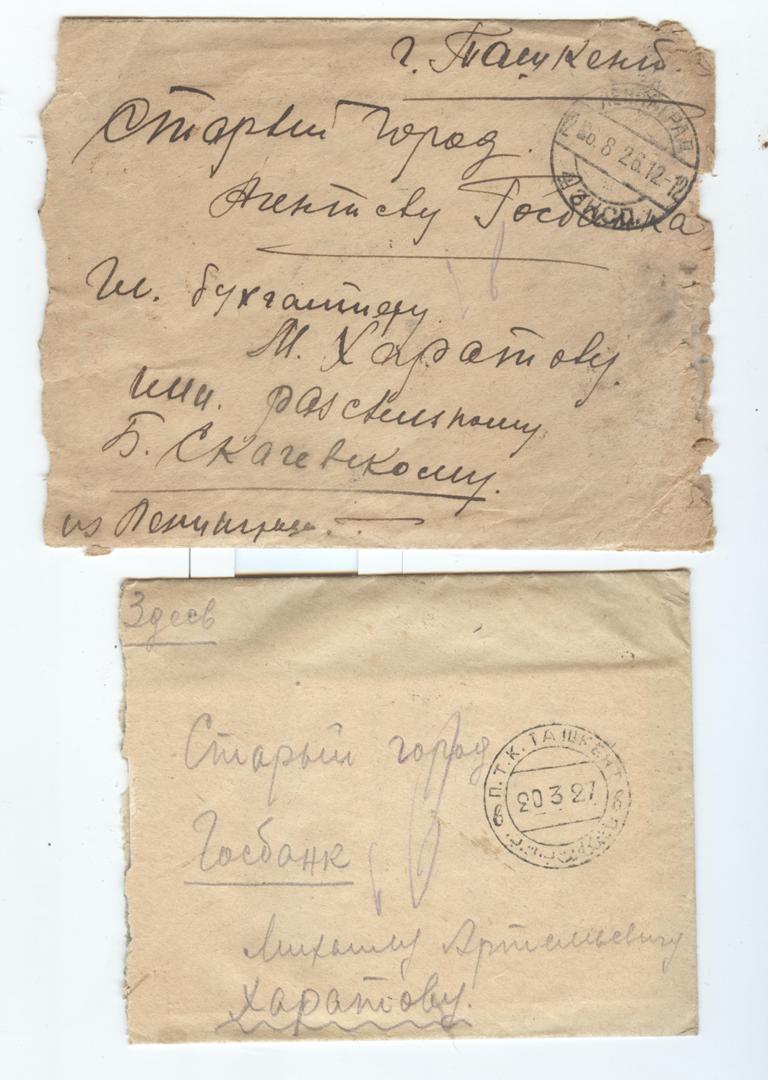 г. Ташкент.
Старый город.
ЛЕНИНГРАД
26.8 26.12-12
ЭКСП.
Агентству Госбанка
Гл. бухгалтеру
М. Харатову.
Б. Скачевскому.
из Ленинграда.
Здесь
Старый город
П.Т.К. ТАШКЕНТ
20 3 27
Госбанк
Михаилу Артемьевичу
Харатову.